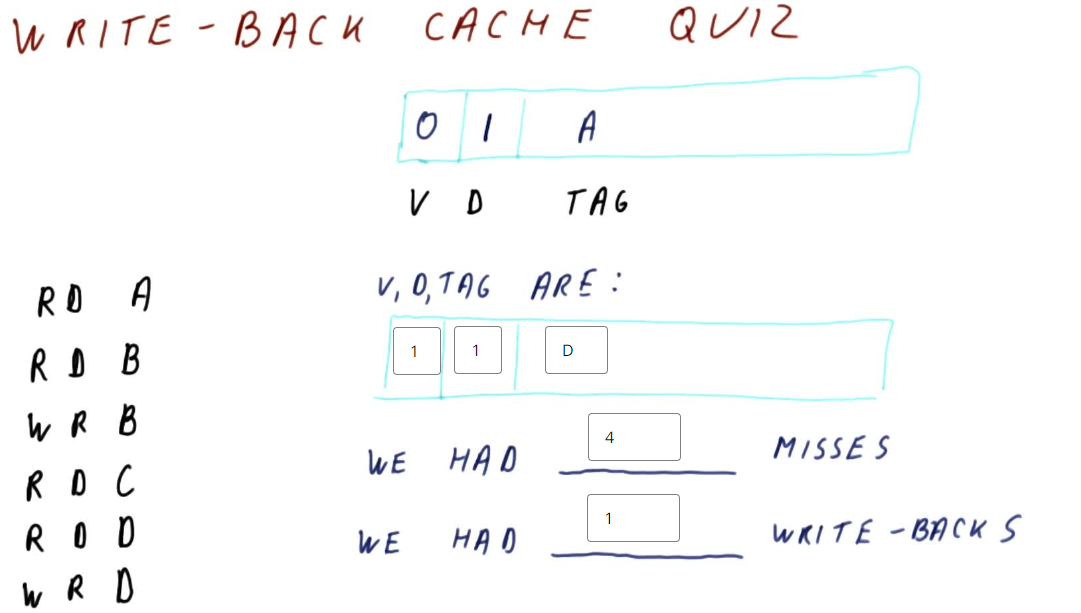 WRITE-BACK CACHE QUIZ
0 1 A
V D TAG
RD A
RD B
WR B
RD C
RD D
WR D
V, D, TAG ARE:
1 1 D
WE HAD 4 MISSES
WE HAD 1 WRITE-BACKS